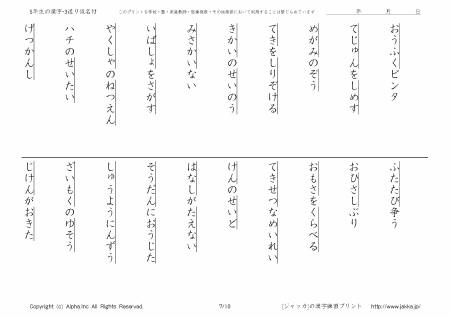 5年生の漢字-3送り仮名付
このプリントを学校・塾・家庭教師・医療機関・その他施設において利用することは禁じられています
年　月　日
おうふくビンタ
てじゅんをしめす
めがみのぞう
てきをしりぞける
きかいのせいのう
みさかいない
いばしょをさがす
やくしゃのねつえん
ハチのせいたい
げつかんし
ふたたび争う
おひさしぶり
おもさをくらべる
てきせつなめいれい
けんのせいど
はなしがたえない
そうだんにおうじた
しゅうようにんずう
ざいもくのゆそう
じけんがおきた
Copyright (c) Alpha.Inc All Rights Reserved.
7/10
[ジャッカ]の漢字練習プリント　http://www.jakka.jp/